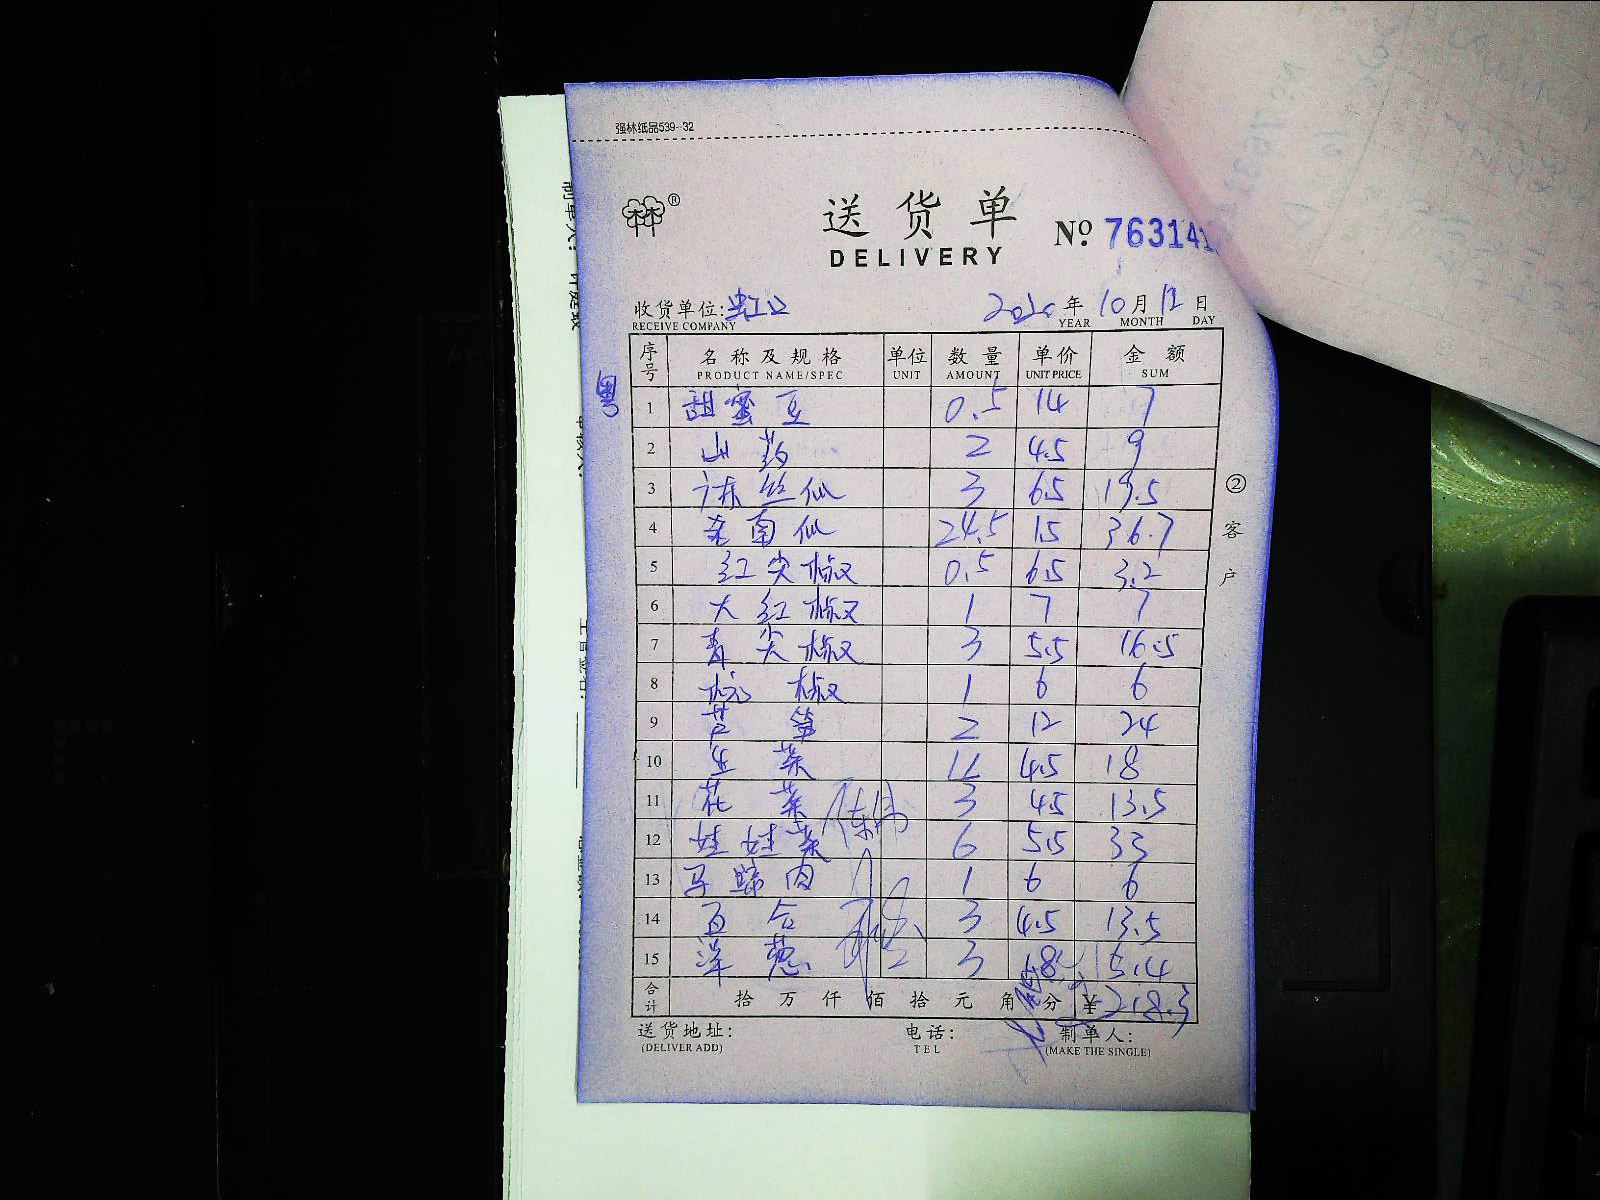 强林纸品539-32
®
送货单
DELIVERY
Nº 763141
收货单位: 虹口 2020年10月12日
RECEIVE COMPANY YEAR MONTH DAY
序号 名称及规格 单位 数量 单价 金额
PRODUCT NAME/SPEC UNIT AMOUNT UNIT PRICE SUM
粤
1 甜蜜豆 0.5 14 7
2 山药 2 4.5 9
3 丝仙 3 6.5 19.5
4 南仙 24.5 1.5 36.7
5 红尖椒 0.5 6.5 3.2
6 大红椒 1 7 7
7 青尖椒 3 5.5 16.5
8 杭椒 1 6 6
9 芦笋 2 12 24
10 生菜 4.5 18
11 花菜 3 4.5 13.5
12 娃娃菜 6 5.5 33
13 马蹄肉 1 6 6
14 百合 3 4.5 13.5
15 洋葱 3 1.8 5.4
合计 拾万仟佰拾元角分 ¥218.3
② 客户
送货地址: 电话: 制单人:
(DELIVER ADD) TEL (MAKE THE SINGLE)